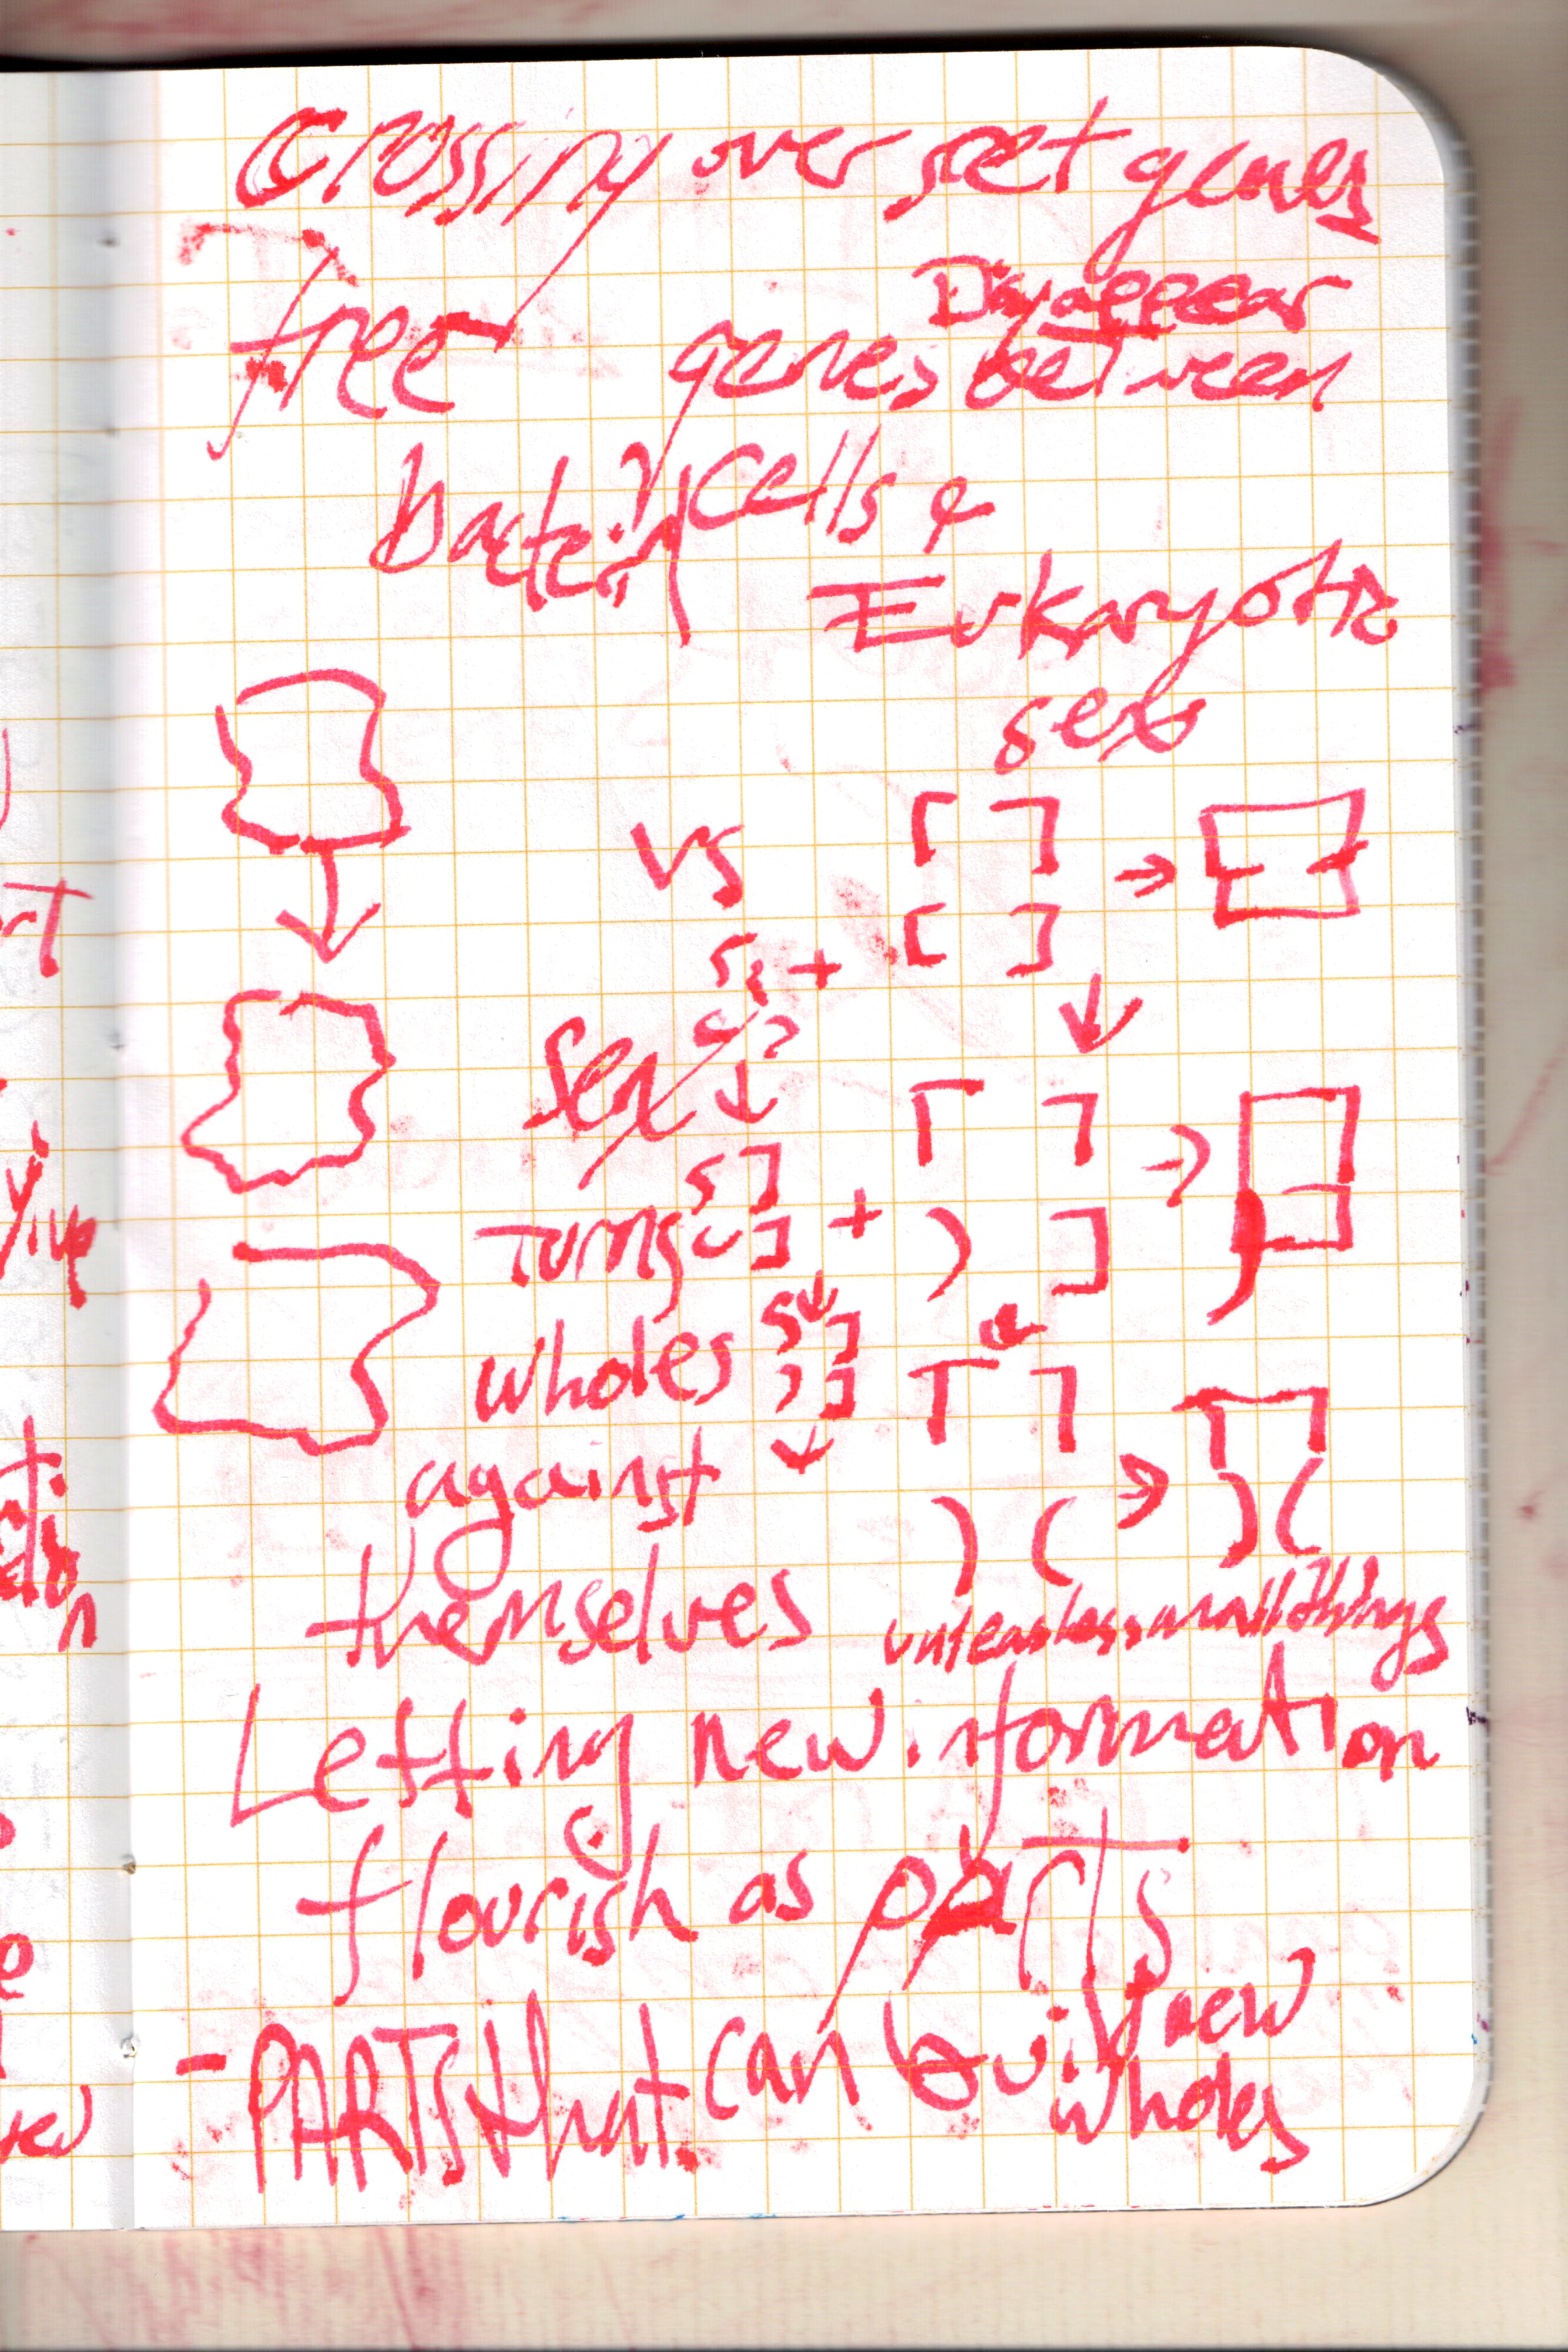 Crossing over set genes
free genes Disappear between
bacteria cells &
Eukaryotic
sex
vs
Sex
Turns
wholes
against
themselves
unleashes small things
Letting new information
flourish as parts
- PARTS that can build new
wholes